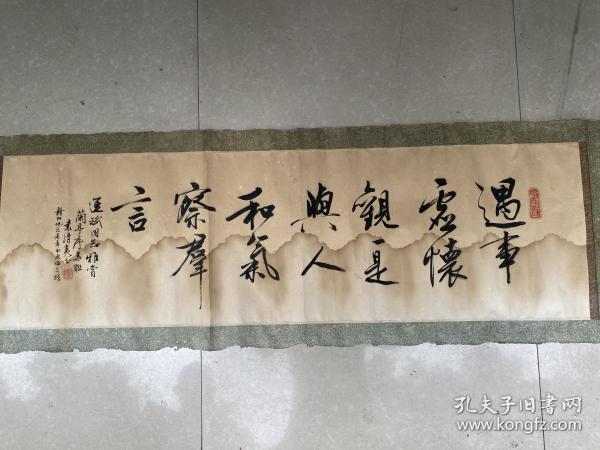 遇事
虚懷
觀一是
與人
和氣
察羣
言
運斌同志雅賞
蘭亭序集聯
孔夫子旧书网
www.kongfz.com